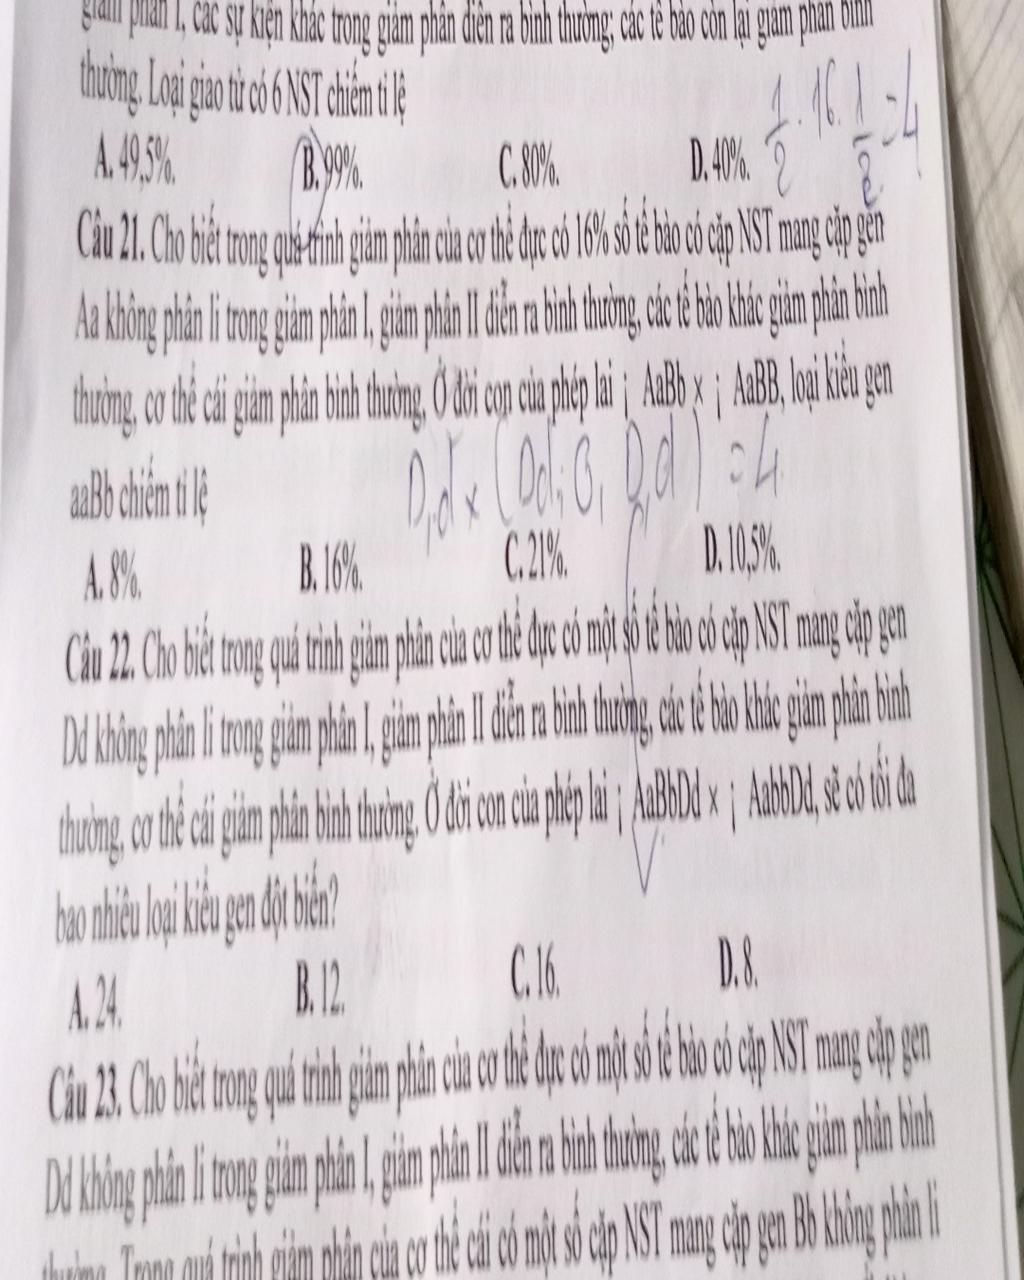 giảm phân I, các sự kiện khác trong giảm phân diễn ra bình thường; các tế bào còn lại giảm phân bình
thường. Loại giao tử có 6 NST chiếm tỉ lệ
1/2 . 16 . 1/2 = 4
A. 49,5%. B. 99%. C. 80%. D. 40%.
Câu 21. Cho biết trong quá trình giảm phân của cơ thể đực có 16% số tế bào có cặp NST mang cặp gen
Aa không phân li trong giảm phân I, giảm phân II diễn ra bình thường, các tế bào khác giảm phân bình
thường, cơ thể cái giảm phân bình thường. Ở đời con của phép lai ¡ AaBb × ¡ AaBB, loại kiểu gen
aaBb chiếm tỉ lệ
D,d x (Dd; O, D,d) = 4
A. 8%. B. 16%. C. 21%. D. 10,5%.
Câu 22. Cho biết trong quá trình giảm phân của cơ thể đực có một số tế bào có cặp NST mang cặp gen
Dd không phân li trong giảm phân I, giảm phân II diễn ra bình thường, các tế bào khác giảm phân bình
thường, cơ thể cái giảm phân bình thường. Ở đời con của phép lai ¡ AaBbDd × ¡ AabbDd, sẽ có tối đa
bao nhiêu loại kiểu gen đột biến?
A. 24. B. 12. C. 16. D. 8.
Câu 23. Cho biết trong quá trình giảm phân của cơ thể đực có một số tế bào có cặp NST mang cặp gen
Dd không phân li trong giảm phân I, giảm phân II diễn ra bình thường, các tế bào khác giảm phân bình
thường. Trong quá trình giảm phân của cơ thể cái có một số cặp NST mang cặp gen Bb không phân li